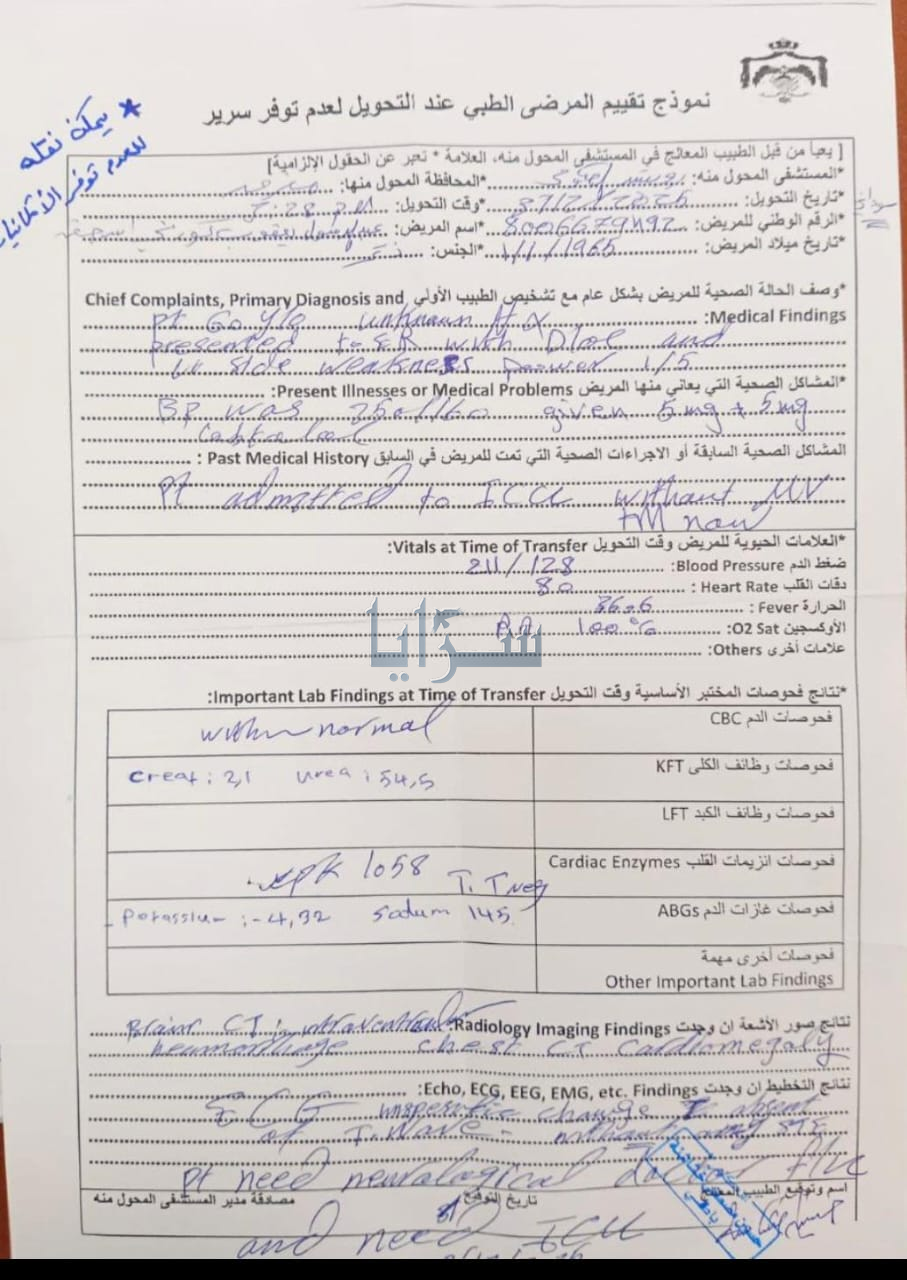 نموذج تقييم المرضى الطبي عند التحويل لعدم توفر سرير
★ يمكن نقله
لعدم توفر الأمكانيات
[ يعبأ من قبل الطبيب المعالج في المستشفى المحول منه، العلامة * تعبر عن الحقول الإلزامية]
*المستشفى المحول منه: *المحافظة المحول منها:
*تاريخ التحويل: *وقت التحويل:
*الرقم الوطني للمريض: *اسم المريض:
*تاريخ ميلاد المريض: 1/1/1965 *الجنس: ذكر
*وصف الحالة الصحية للمريض بشكل عام مع تشخيص الطبيب الأولي Chief Complaints, Primary Diagnosis and
Medical Findings:
pt 60 y/o unknown Hx
presented to ER with DLOC and
side weakness power 1/5
*المشاكل الصحية التي يعاني منها المريض Present Illnesses or Medical Problems:
BP was given 5mg + 5mg
المشاكل الصحية السابقة أو الاجراءات الصحية التي تمت للمريض في السابق Past Medical History :
Pt admitted to ICU without MV
till now
*العلامات الحيوية للمريض وقت التحويل Vitals at Time of Transfer:
ضغط الدم Blood Pressure: 211/128
دقات القلب Heart Rate : 80
الحرارة Fever : 36.6
الأوكسجين O2 Sat: RA 100%
علامات أخرى Others:
سرايا
*نتائج فحوصات المختبر الأساسية وقت التحويل Important Lab Findings at Time of Transfer:
فحوصات الدم CBC within normal
فحوصات وظائف الكلى KFT Creat : 2,1 Urea : 54,5
فحوصات وظائف الكبد LFT
فحوصات انزيمات القلب Cardiac Enzymes CPK 1058 T. T neg
فحوصات غازات الدم ABGs Potassium :- 4,32 Sodum 145
فحوصات أخرى مهمة
Other Important Lab Findings
نتائج صور الأشعة ان وجدت Radiology Imaging Findings: Brain CT :
heamorrhage chest CT Cardiomegaly
نتائج التخطيط ان وجدت Echo, ECG, EEG, EMG, etc. Findings:
ECG change absent
of T. wave - without any STE
pt need neurological
اسم وتوقيع الطبيب المعالج تاريخ التوقيع مصادقة مدير المستشفى المحول منه
and need ICU